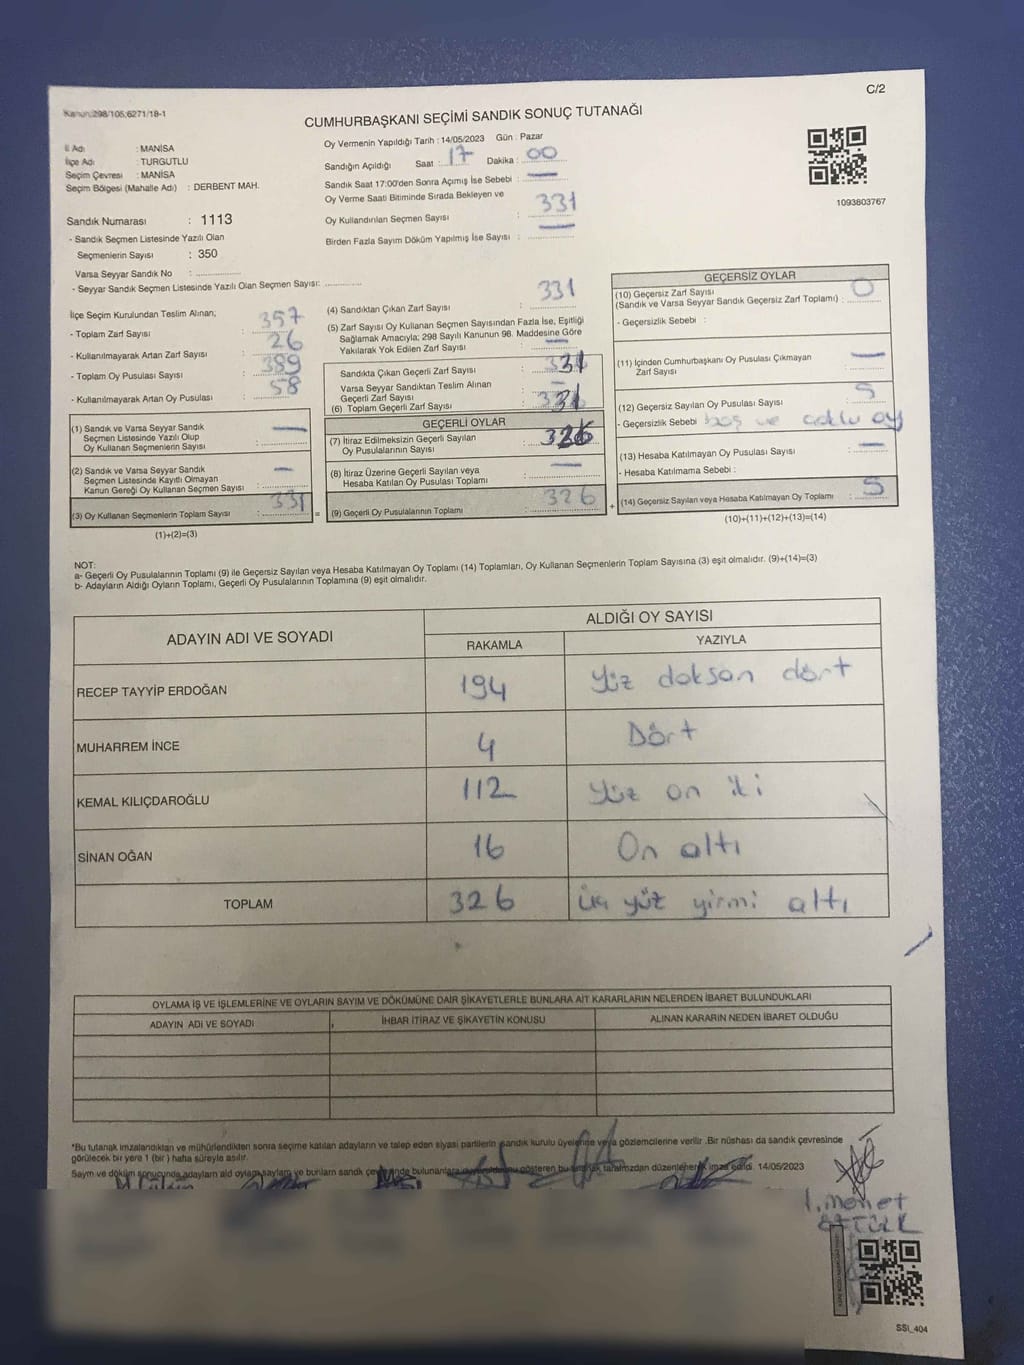 C/2
Kanun:298/105;6271/18-1
CUMHURBAŞKANI SEÇİMİ SANDIK SONUÇ TUTANAĞI
İl Adı : MANİSA
İlçe Adı : TURGUTLU
Seçim Çevresi : MANİSA
Seçim Bölgesi (Mahalle Adı) : DERBENT MAH.
Sandık Numarası : 1113
- Sandık Seçmen Listesinde Yazılı Olan
Seçmenlerin Sayısı : 350
Varsa Seyyar Sandık No :
- Seyyar Sandık Seçmen Listesinde Yazılı Olan Seçmen Sayısı:
Oy Vermenin Yapıldığı Tarih : 14/05/2023 Gün : Pazar
Sandığın Açıldığı Saat : 17 Dakika : 00
Sandık Saat 17:00'den Sonra Açımış İse Sebebi : —
Oy Verme Saati Bitiminde Sırada Bekleyen ve
Oy Kullandırılan Seçmen Sayısı : 331
Birden Fazla Sayım Döküm Yapılmış İse Sayısı : —
1093803767
İlçe Seçim Kurulundan Teslim Alınan;
- Toplam Zarf Sayısı : 357
- Kullanılmayarak Artan Zarf Sayısı : 26
- Toplam Oy Pusulası Sayısı : 389
- Kullanılmayarak Artan Oy Pusulası : 58
(1) Sandık ve Varsa Seyyar Sandık
Seçmen Listesinde Yazılı Olup
Oy Kullanan Seçmenlerin Sayısı : —
(2) Sandık ve Varsa Seyyar Sandık
Seçmen Listesinde Kayıtlı Olmayan
Kanun Gereği Oy Kullanan Seçmen Sayısı : —
(3) Oy Kullanan Seçmenlerin Toplam Sayısı : 331
(1)+(2)=(3)
=
(4) Sandıktan Çıkan Zarf Sayısı : 331
(5) Zarf Sayısı Oy Kullanan Seçmen Sayısından Fazla İse, Eşitliği
Sağlamak Amacıyla; 298 Sayılı Kanunun 98. Maddesine Göre
Yakılarak Yok Edilen Zarf Sayısı : —
Sandıkta Çıkan Geçerli Zarf Sayısı : 331
Varsa Seyyar Sandıktan Teslim Alınan
Geçerli Zarf Sayısı : —
(6) Toplam Geçerli Zarf Sayısı : 331
GEÇERLİ OYLAR
(7) İtiraz Edilmeksizin Geçerli Sayılan
Oy Pusulalarının Sayısı : 326
(8) İtiraz Üzerine Geçerli Sayılan veya
Hesaba Katılan Oy Pusulası Toplamı : —
(9) Geçerli Oy Pusulalarının Toplamı : 326
+
GEÇERSİZ OYLAR
(10) Geçersiz Zarf Sayısı
(Sandık ve Varsa Seyyar Sandık Geçersiz Zarf Toplamı) : 0
- Geçersizlik Sebebi :
(11) İçinden Cumhurbaşkanı Oy Pusulası Çıkmayan
Zarf Sayısı : —
(12) Geçersiz Sayılan Oy Pusulası Sayısı : 5
- Geçersizlik Sebebi boş ve çoklu oy
(13) Hesaba Katılmayan Oy Pusulası Sayısı : —
- Hesaba Katılmama Sebebi :
(14) Geçersiz Sayılan veya Hesaba Katılmayan Oy Toplamı : 5
(10)+(11)+(12)+(13)=(14)
NOT:
a- Geçerli Oy Pusulalarının Toplamı (9) ile Geçersiz Sayılan veya Hesaba Katılmayan Oy Toplamı (14) Toplamları, Oy Kullanan Seçmenlerin Toplam Sayısına (3) eşit olmalıdır. (9)+(14)=(3)
b- Adayların Aldığı Oyların Toplamı, Geçerli Oy Pusulalarının Toplamına (9) eşit olmalıdır.
ADAYIN ADI VE SOYADI
ALDIĞI OY SAYISI
RAKAMLA YAZIYLA
RECEP TAYYİP ERDOĞAN 194 Yüz doksan dört
MUHARREM İNCE 4 Dört
KEMAL KILIÇDAROĞLU 112 Yüz on iki
SİNAN OĞAN 16 On altı
TOPLAM 326 üç yüz yirmi altı
OYLAMA İŞ VE İŞLEMLERİNE VE OYLARIN SAYIM VE DÖKÜMÜNE DAİR ŞİKAYETLERLE BUNLARA AİT KARARLARIN NELERDEN İBARET BULUNDUKLARI
ADAYIN ADI VE SOYADI İHBAR İTİRAZ VE ŞİKAYETİN KONUSU ALINAN KARARIN NEDEN İBARET OLDUĞU
*Bu tutanak imzalandıktan ve mühürlendikten sonra seçime katılan adayların ve talep eden siyasi partilerin sandık kurulu üyelerine veya gözlemcilerine verilir .Bir nüshası da sandık çevresinde
görülecek bir yere 1 (bir ) hafta süreyle asılır.
Sayım ve döküm sonucunda adayların bulunanlara gösteren bu tarafımızdan düzenlenerek imza edildi. 14/05/2023
SSI_404